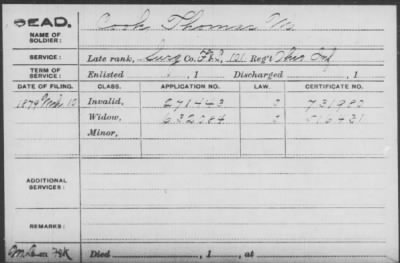 DEAD.
NAME OF SOLDIER: Cook Thomas M.
SERVICE: Late rank, Surg Co. F&S, 101 Reg't Inf
TERM OF SERVICE: Enlisted , 1 Discharged , 1
DATE OF FILING. CLASS. APPLICATION NO. LAW. CERTIFICATE NO.
1879 Mch 10 Invalid, 271443 731980
Widow, 632084 516421
Minor,
ADDITIONAL SERVICES:
REMARKS:
Died , 1 , at